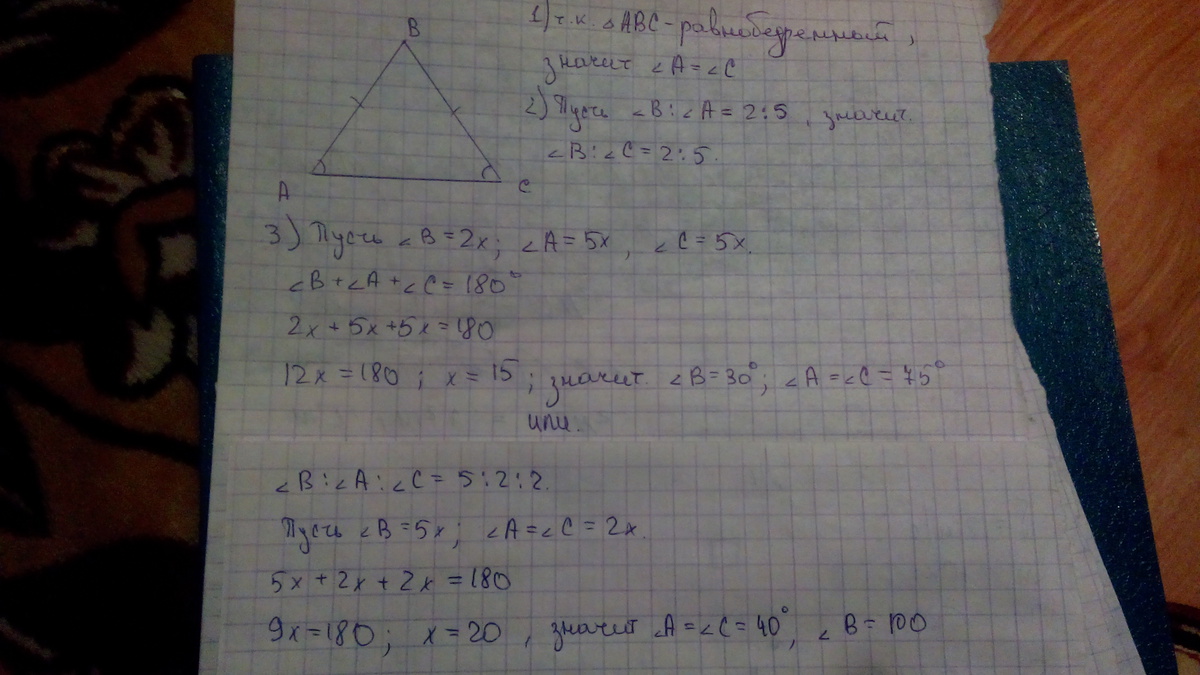 B
A
C
1) т.к. △ABC - равнобедренный,
значит ∠A = ∠C
2) Пусть ∠B : ∠A = 2 : 5, значит.
∠B : ∠C = 2 : 5.
3) Пусть ∠B = 2x; ∠A = 5x, ∠C = 5x.
∠B + ∠A + ∠C = 180°
2x + 5x + 5x = 180
12x = 180; x = 15; значит. ∠B = 30°; ∠A = ∠C = 75°
или.
∠B : ∠A : ∠C = 5 : 2 : 2.
Пусть ∠B = 5x; ∠A = ∠C = 2x.
5x + 2x + 2x = 180
9x = 180; x = 20, значит ∠A = ∠C = 40°, ∠B = 100